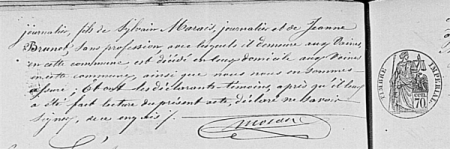 journalier, fils de Sylvain Marais, journalier et de Jeanne
Brunet, sans profession avec lesquels il demeure aux Raines
en cette commune est décédé en son domicile aux Raines
en cette commune, ainsi que nous nous en sommes
assuré; Et ont les déclarants témoins, après qu'il leur
a été fait lecture du présent acte, déclaré ne savoir
signer, de ce enquis /
TIMBRE IMPERIAL
70